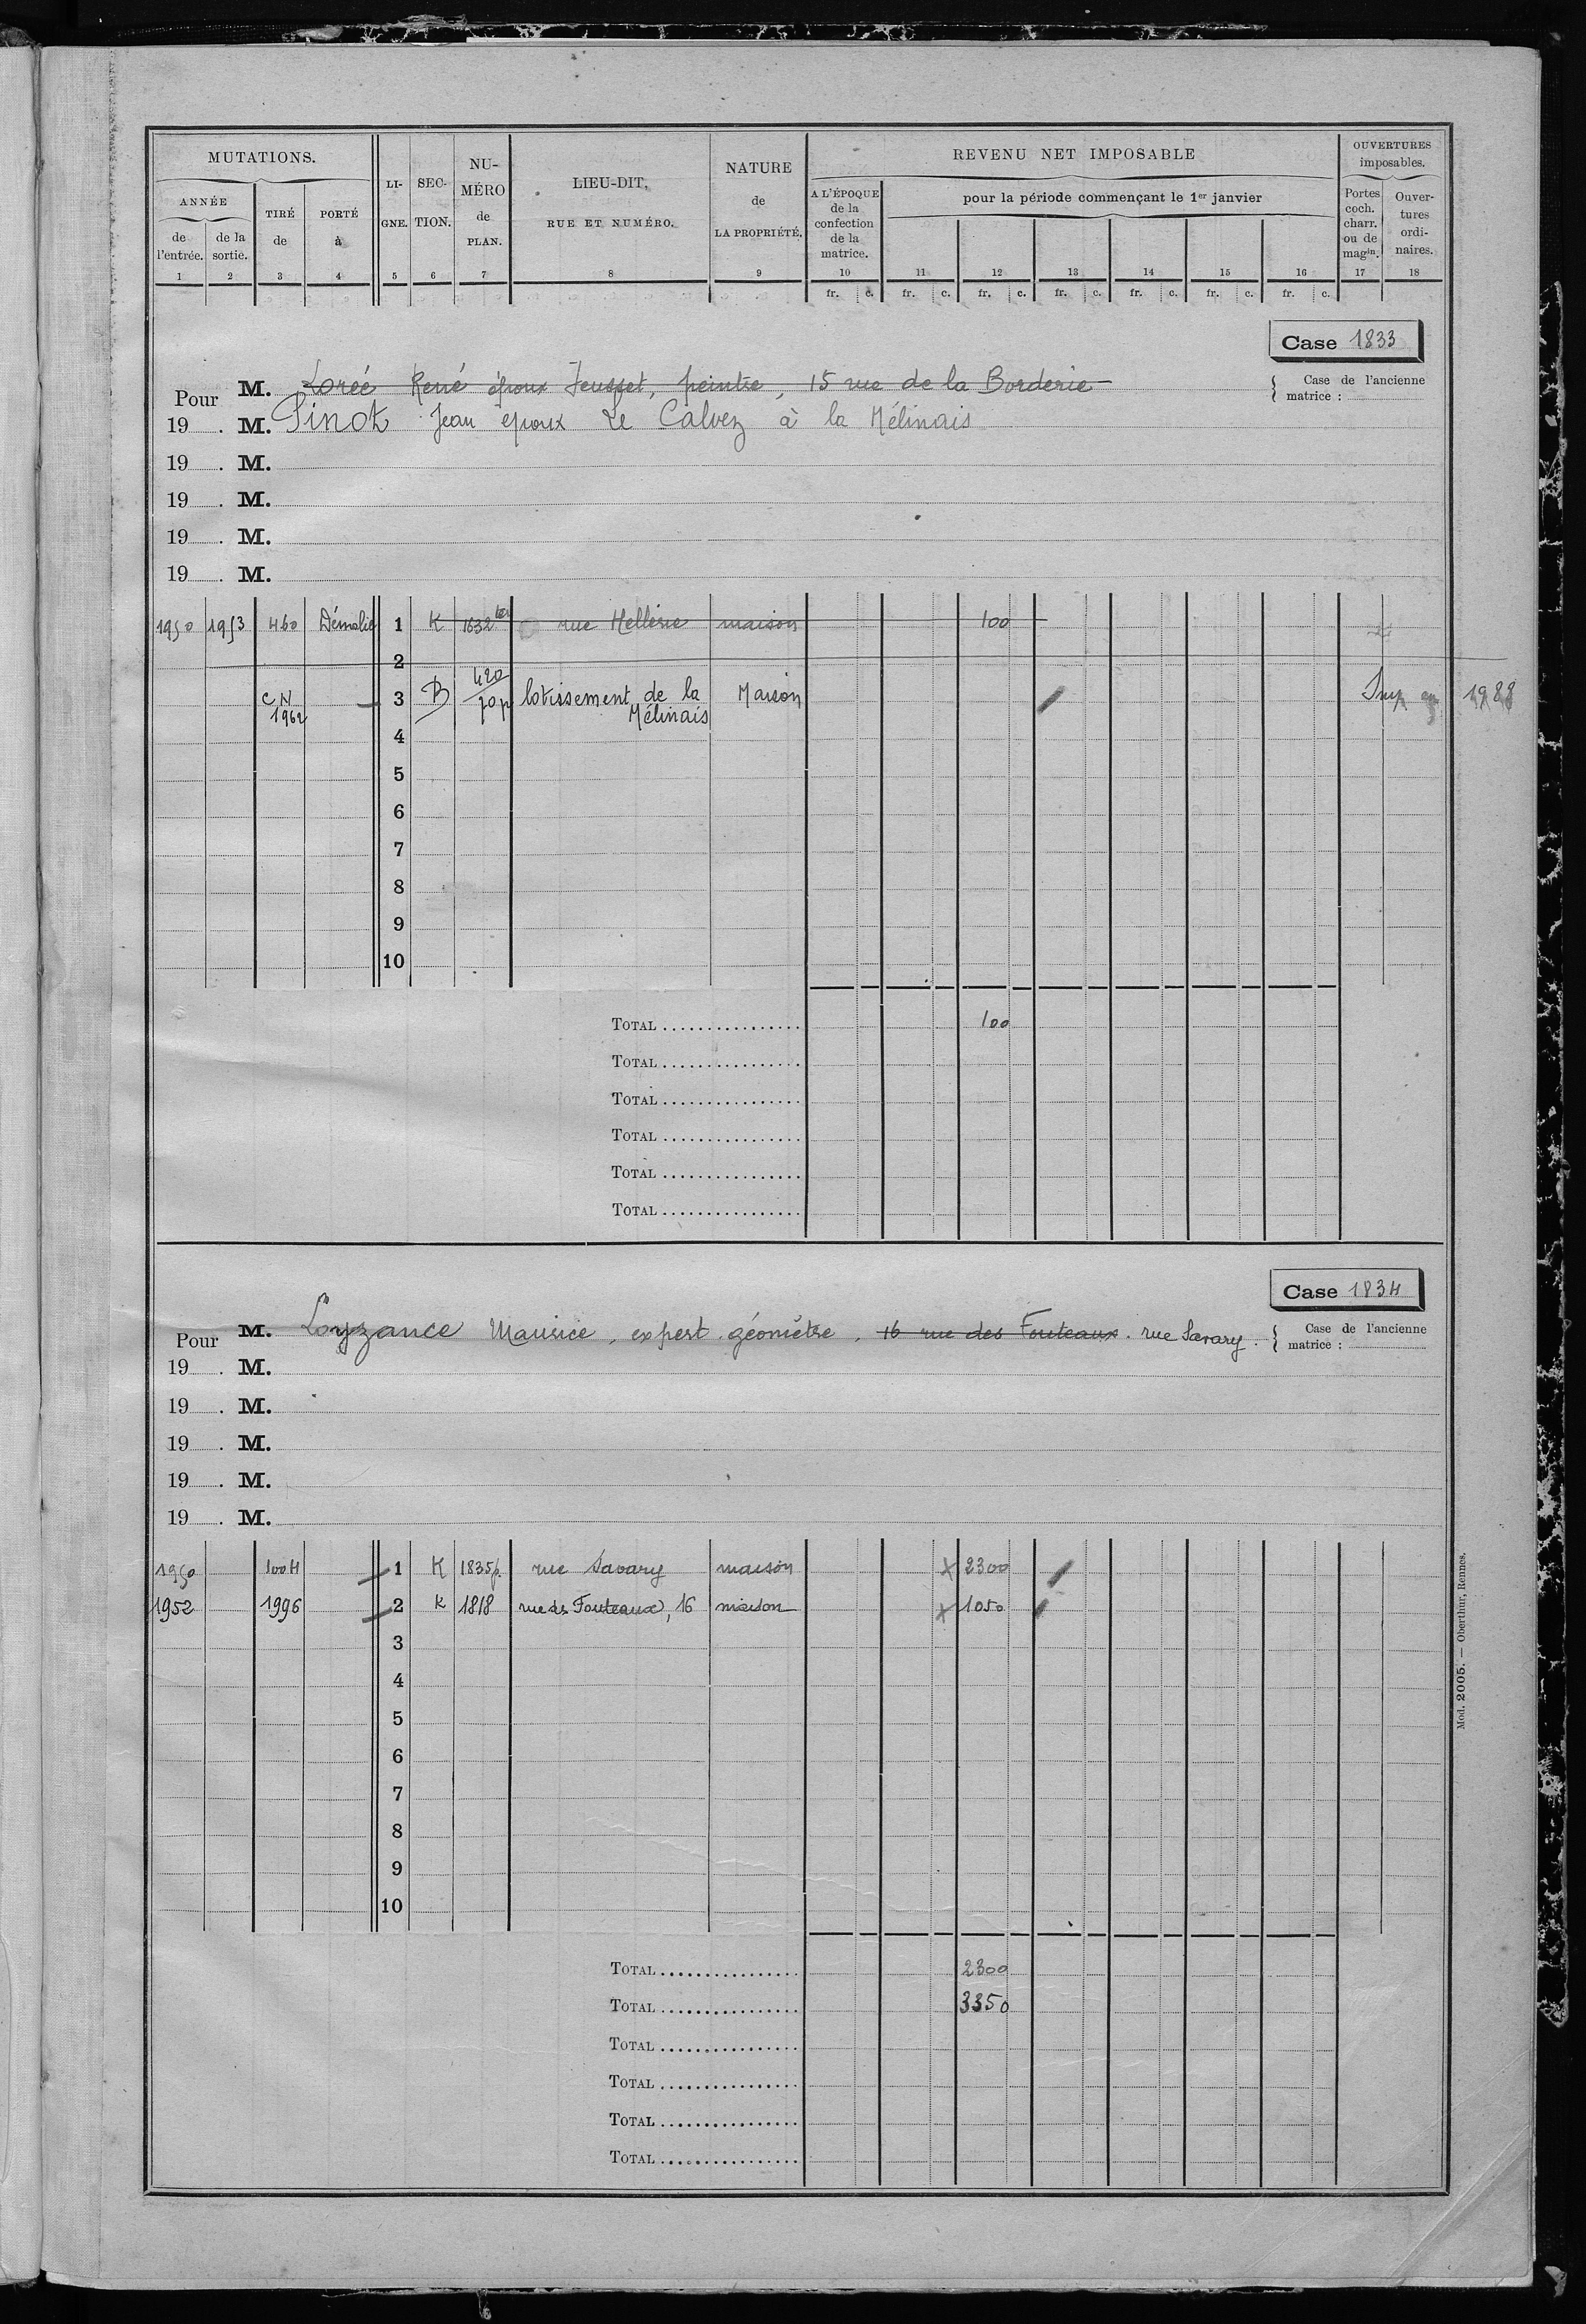 MUTATIONS. LI- SEC- NU- LIEU-DIT, NATURE REVENU NET IMPOSABLE OUVERTURES
imposables.
ANNÉE TIRÉ PORTÉ GNE. TION. MÉRO RUE ET NUMÉRO. de A L'ÉPOQUE pour la période commençant le 1er janvier Portes Ouver-
de de la de à de LA PROPRIÉTÉ. de la coch. tures
l'entrée. sortie. PLAN. confection charr. ordi-
de la ou de naires.
matrice. magin.
1 2 3 4 5 6 7 8 9 10 11 12 13 14 15 16 17 18
fr. c. fr. c. fr. c. fr. c. fr. c. fr. c. fr. c.
Case 1833
Pour M. Lorée René époux Jeusset, peintre, 15 rue de la Borderie
Case de l'ancienne
matrice :
19 . M. Pinot Jean époux Le Calvez à la Mélinais
19 . M.
19 . M.
19 . M.
19 . M.
1950 1953 460 Démolie 1 K 1632 ter rue Hellerie maison 100
2
CN 1962 3 B 420/70p lotissement de la Mélinais Maison 1988
4
5
6
7
8
9
10
TOTAL 100
TOTAL
TOTAL
TOTAL
TOTAL
TOTAL
Case 1834
Pour M. Loyzance Maurice, expert géomètre, 16 rue des Fouteaux. rue Savary.
Case de l'ancienne
matrice :
19 . M.
19 . M.
19 . M.
19 . M.
19 . M.
1950 1004 1 K 1835p. rue Savary maison x 2300
1952 1996 2 K 1818 rue des Fouteaux, 16 maison x 1050
3
4
5
6
7
8
9
10
TOTAL 2300
TOTAL 3350
TOTAL
TOTAL
TOTAL
TOTAL
Mod. 2005. — Oberthur, Rennes.